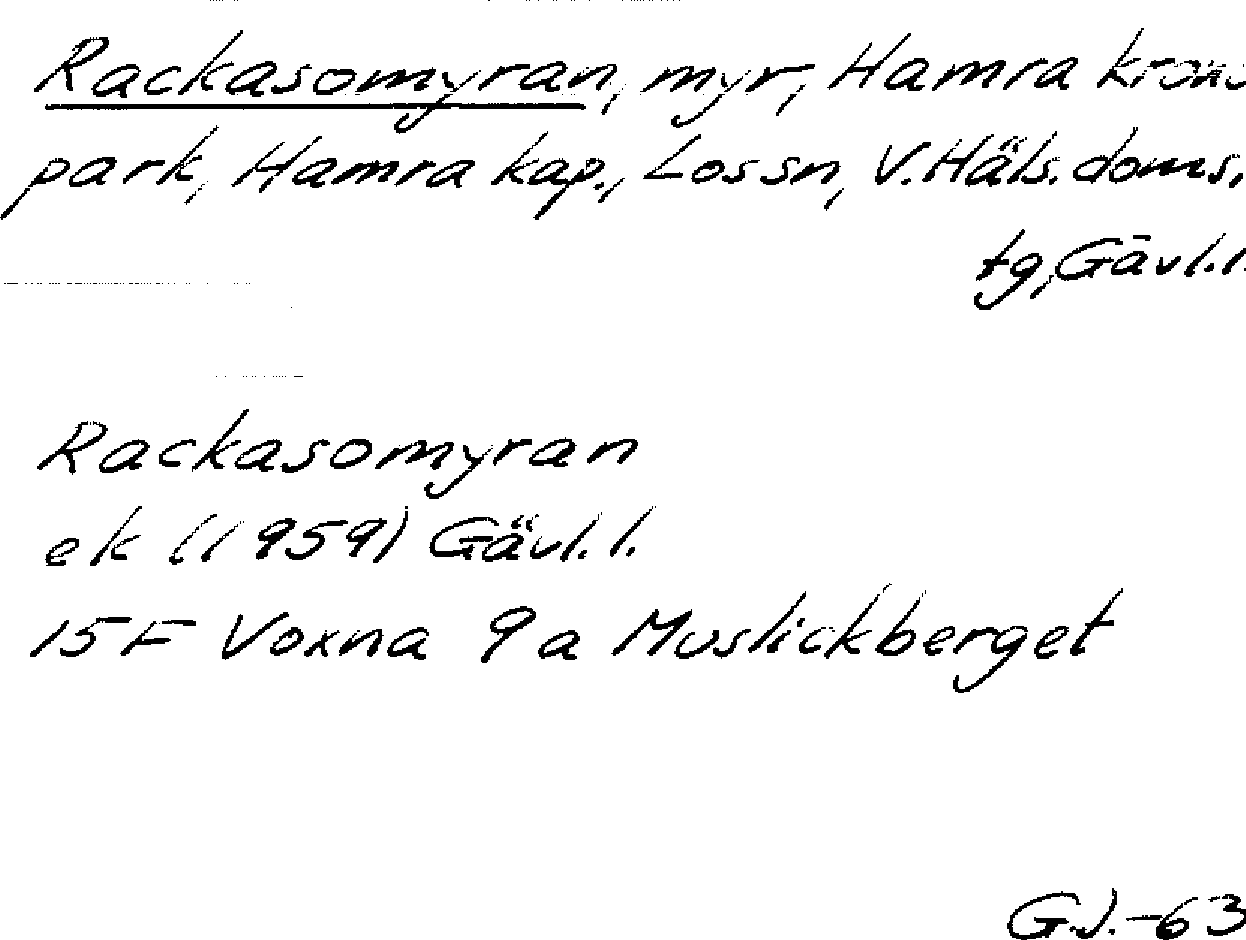 Rackasomyran, myr, Hamra krono
park, Hamra kap., Los sn, V. Häls. doms.
tg, Gävl. l.
Rackasomyran
ek (1959) Gävl. l.
15F Voxna 9a Muslickberget
G.J.-63